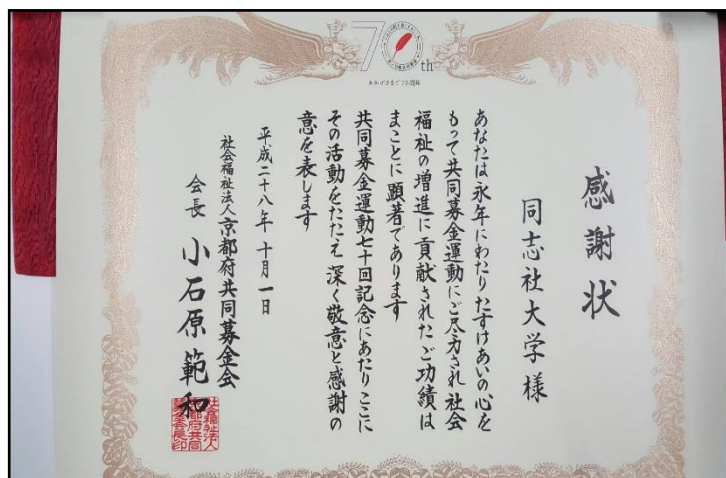 70th
おかげさまで70周年
感謝状
同志社大学様
あなたは永年にわたりたすけあいの心を
もって共同募金運動にご尽力され社会
福祉の増進に貢献されたご功績は
まことに顕著であります
共同募金運動七十回記念にあたりここに
その活動をたたえ深く敬意と感謝の
意を表します
平成二十八年十月一日
社会福祉法人京都府共同募金会
会長 小石原範和